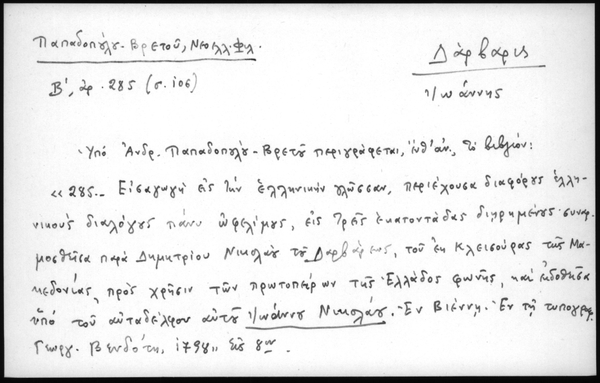 Παπαδοπούλου-Βρετοῦ, Νεοελλ. Φιλ.
Δάρβαρις
Ἰωάννης
Β', ἀρ. 285 (σ. 106)
Ὑπό Ἀνδρ. Παπαδοπούλου-Βρετοῦ περιγράφεται, ἔνθ' ἀν., τό βιβλίον:
«285.- Εἰσαγωγή εἰς τήν ἑλληνικήν γλῶσσαν, περιέχουσα διαφόρους ἑλλη-
νικούς διαλόγους πάνυ ὠφελίμους, εἰς τρεῖς ἑκατοντάδας διῃρημένους· συναρ-
μοσθεῖσα παρά Δημητρίου Νικολάου τοῦ Δαρβάρεως, τοῦ ἐκ Κλεισούρας τῆς Μα-
κεδονίας, πρός χρῆσιν τῶν πρωτοπείρων τῆς Ἑλλάδος φωνῆς, καί ἐκδοθεῖσα
ὑπό τοῦ αὐταδέλφου αὐτοῦ Ἰωάννου Νικολάου. Ἐν Βιέννῃ. Ἐν τῇ τυπογρ.
Γεωργ. Βενδότη, 1798,, εἰς 8ον.